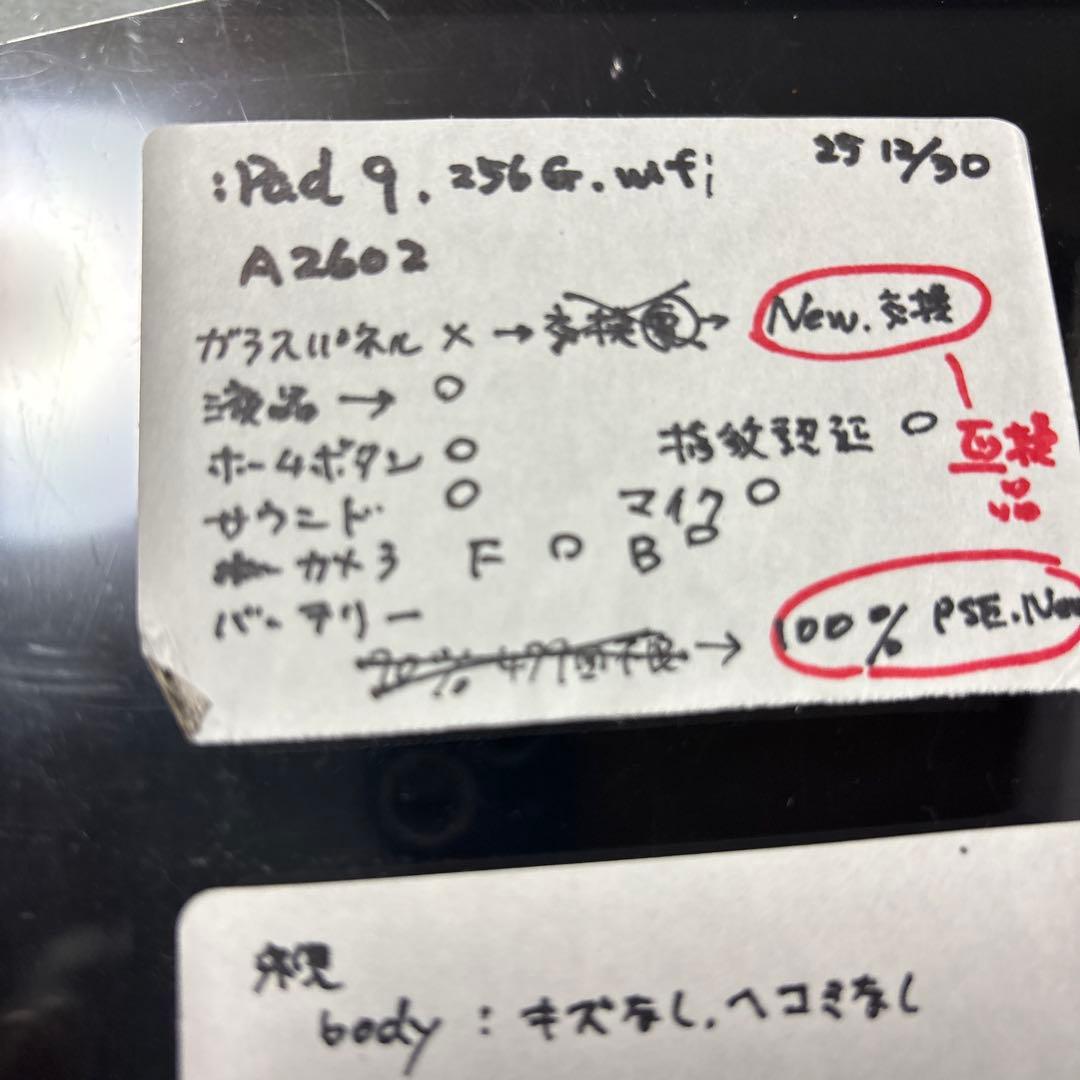 iPad 9. 256G. wifi 25 12/30
A2602
ガラスパネル × → 交換 → New. 交換
液晶 → ○
互換品
ホームボタン ○ 指紋認証 ○
サウンド ○ マイク ○
カメラ F ○ B ○
バッテリー
→ 100% PSE. New
外観
body : キズなし. ヘコミなし